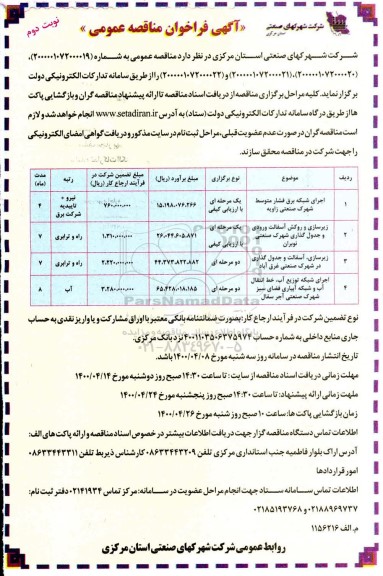 شرکت شهرکهای صنعتی
استان مرکزی
«آگهی فراخوان مناقصه عمومی »
نوبت دوم
شرکت شهرکهای صنعتی استان مرکزی در نظر دارد مناقصه عمومی به شماره (۲۰۰۰۰۰۱۰۷۲۰۰۰۰۱۹)،
(۲۰۰۰۰۰۱۰۷۲۰۰۰۰۲۰)، (۲۰۰۰۰۰۱۰۷۲۰۰۰۰۲۱) و (۲۰۰۰۰۰۱۰۷۲۰۰۰۰۲۲) را از طریق سامانه تدارکات الکترونیکی دولت
برگزار نماید. کلیه مراحل برگزاری مناقصه از دریافت اسناد مناقصه تا ارائه پیشنهاد مناقصه گران و بازگشایی پاکت
ها از طریق درگاه سامانه تدارکات الکترونیکی دولت (ستاد) به آدرس www.setadiran.ir انجام خواهد شد و لازم
است مناقصه گران در صورت عدم عضویت قبلی، مراحل ثبت نام در سایت مذکور و دریافت گواهی امضای الکترونیکی
را جهت شرکت در مناقصه محقق سازند.
ردیف موضوع نوع برگزاری مبلغ برآورد (ریال) مبلغ تضمین شرکت در فرآیند ارجاع کار (ریال) رتبه مدت (ماه)
۱ اجرای شبکه برق فشار متوسط شهرک صنعتی زاویه یک مرحله ای با ارزیابی کیفی ۱۵،۱۹۸،۰۷۶،۲۶۶ ۷۶۰،۰۰۰،۰۰۰ نیرو - تاییدیه شرکت برق ۴
۲ زیرسازی و روکش آسفالت ورودی و جدول گذاری شهرک صنعتی نوبران یک مرحله ای با ارزیابی کیفی ۲۶،۰۴۴،۶۰۵،۸۷۱ ۱،۳۱۰،۰۰۰،۰۰۰ راه و ترابری ۷
۳ زیرسازی، آسفالت و جدول گذاری در شهرک صنعتی غرق آباد دو مرحله ای ۴۴،۳۷۳،۸۲۲،۸۸۲ ۲،۲۲۰،۰۰۰،۰۰۰ راه و ترابری ۷
۴ اجرای شبکه توزیع آب، خط انتقال آب و شبکه آبیاری فضای سبز شهرک صنعتی آجر سفال دو مرحله ای ۶۵،۴۲۸،۰۱۸،۱۸۵ ۳،۲۸۰،۰۰۰،۰۰۰ آب ۸
ParsNamadData
۰۲۱-۸۸۳۴۹۶۷۰-۵
نوع تضمین شرکت در فرآیند ارجاع کار: بصورت ضمانتنامه بانکی معتبر یا اوراق مشارکت و یا واریز نقدی به حساب
جاری منابع داخلی به شماره حساب ۴۰۰۱۱۰۳۵۰۶۳۷۵۹۷۴ نزد بانک مرکزی.
تاریخ انتشار مناقصه در سامانه روز سه شنبه مورخ ۱۴۰۰/۰۴/۰۸ باشد.
مهلت زمانی دریافت اسناد مناقصه از سایت: تا ساعت ۱۴:۳۰ صبح روز دوشنبه مورخ ۱۴۰۰/۰۴/۱۴
مهلت زمانی ارائه پیشنهاد: تا ساعت ۱۴:۳۰ صبح روز پنجشنبه مورخ ۱۴۰۰/۰۴/۲۴
زمان بازگشایی پاکت ها: ساعت ۱۰ صبح روز شنبه مورخ ۱۴۰۰/۰۴/۲۶
اطلاعات تماس دستگاه مناقصه گزار جهت دریافت اطلاعات بیشتر در خصوص اسناد مناقصه و ارائه پاکت های الف:
آدرس اراک بلوار فاطمیه جنب استانداری مرکزی تلفن ۰۸۶۳۳۴۴۳۲۰۹ کارشناس ذیربط تلفن ۰۸۶۳۳۴۴۳۳۱۱
امور قراردادها
اطلاعات تماس سامانه ستاد جهت انجام مراحل عضویت در سامانه: مرکز تماس ۰۲۱۴۱۹۳۴ دفتر ثبت نام:
۰۲۱۸۸۹۶۹۷۳۷ و ۰۲۱۸۵۱۹۳۷۶۸
م.الف ۱۱۵۶۲۱۶
روابط عمومی شرکت شهرکهای صنعتی استان مرکزی